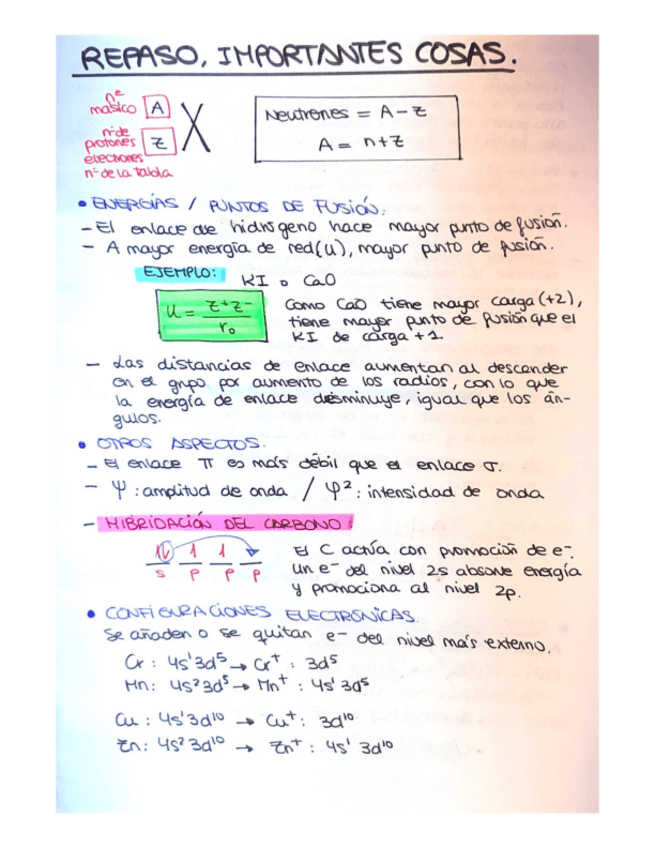 REPASO, IMPORTANTES COSAS.
nº
másico A
X
nº de
protones Z
electrones
nº de la tabla
Neutrones = A - Z
A = n + Z
• ENERGÍAS / PUNTOS DE FUSIÓN.
- El enlace de hidrógeno hace mayor punto de fusión.
- A mayor energía de red (U), mayor punto de fusión.
EJEMPLO: KI o CaO
U = Z+Z- / r₀
Como CaO tiene mayor carga (+2),
tiene mayor punto de fusión que el
KI de carga +1.
- Las distancias de enlace aumentan al descender
en el grupo por aumento de los radios, con lo que
la energía de enlace disminuye, igual que los án-
gulos.
• OTROS ASPECTOS.
- El enlace π es más débil que el enlace σ.
- Ψ : amplitud de onda / φ² : intensidad de onda
- HIBRIDACIÓN DEL CARBONO:
1↓ 1 1
s p p p
El C actúa con promoción de e-.
Un e- del nivel 2s absorve energía
y promociona al nivel 2p.
• CONFIGURACIONES ELECTRÓNICAS.
Se añaden o se quitan e- del nivel más externo.
Cr : 4s¹3d⁵ → Cr⁺ : 3d⁵
Mn: 4s²3d⁵ → Mn⁺ : 4s¹ 3d⁵
Cu : 4s¹3d¹⁰ → Cu⁺: 3d¹⁰
Zn: 4s² 3d¹⁰ → Zn⁺ : 4s¹ 3d¹⁰